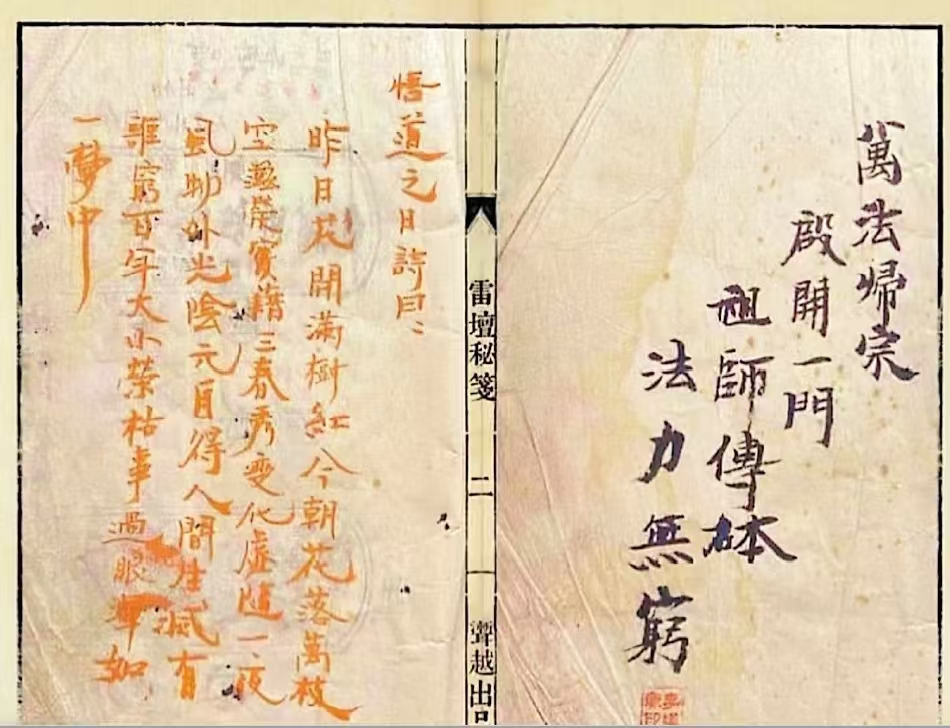 萬法歸宗
啟開一門
祖師傳本
法力無窮
雷壇秘箋
二
悟道之日詩曰：
昨日花開滿樹紅今朝花落萬枝
空滋榮實藉三春秀变化虛隨一夜
風物外光陰元自得人間生滅有
誰窮百年大小榮枯事過眼渾如
一夢中